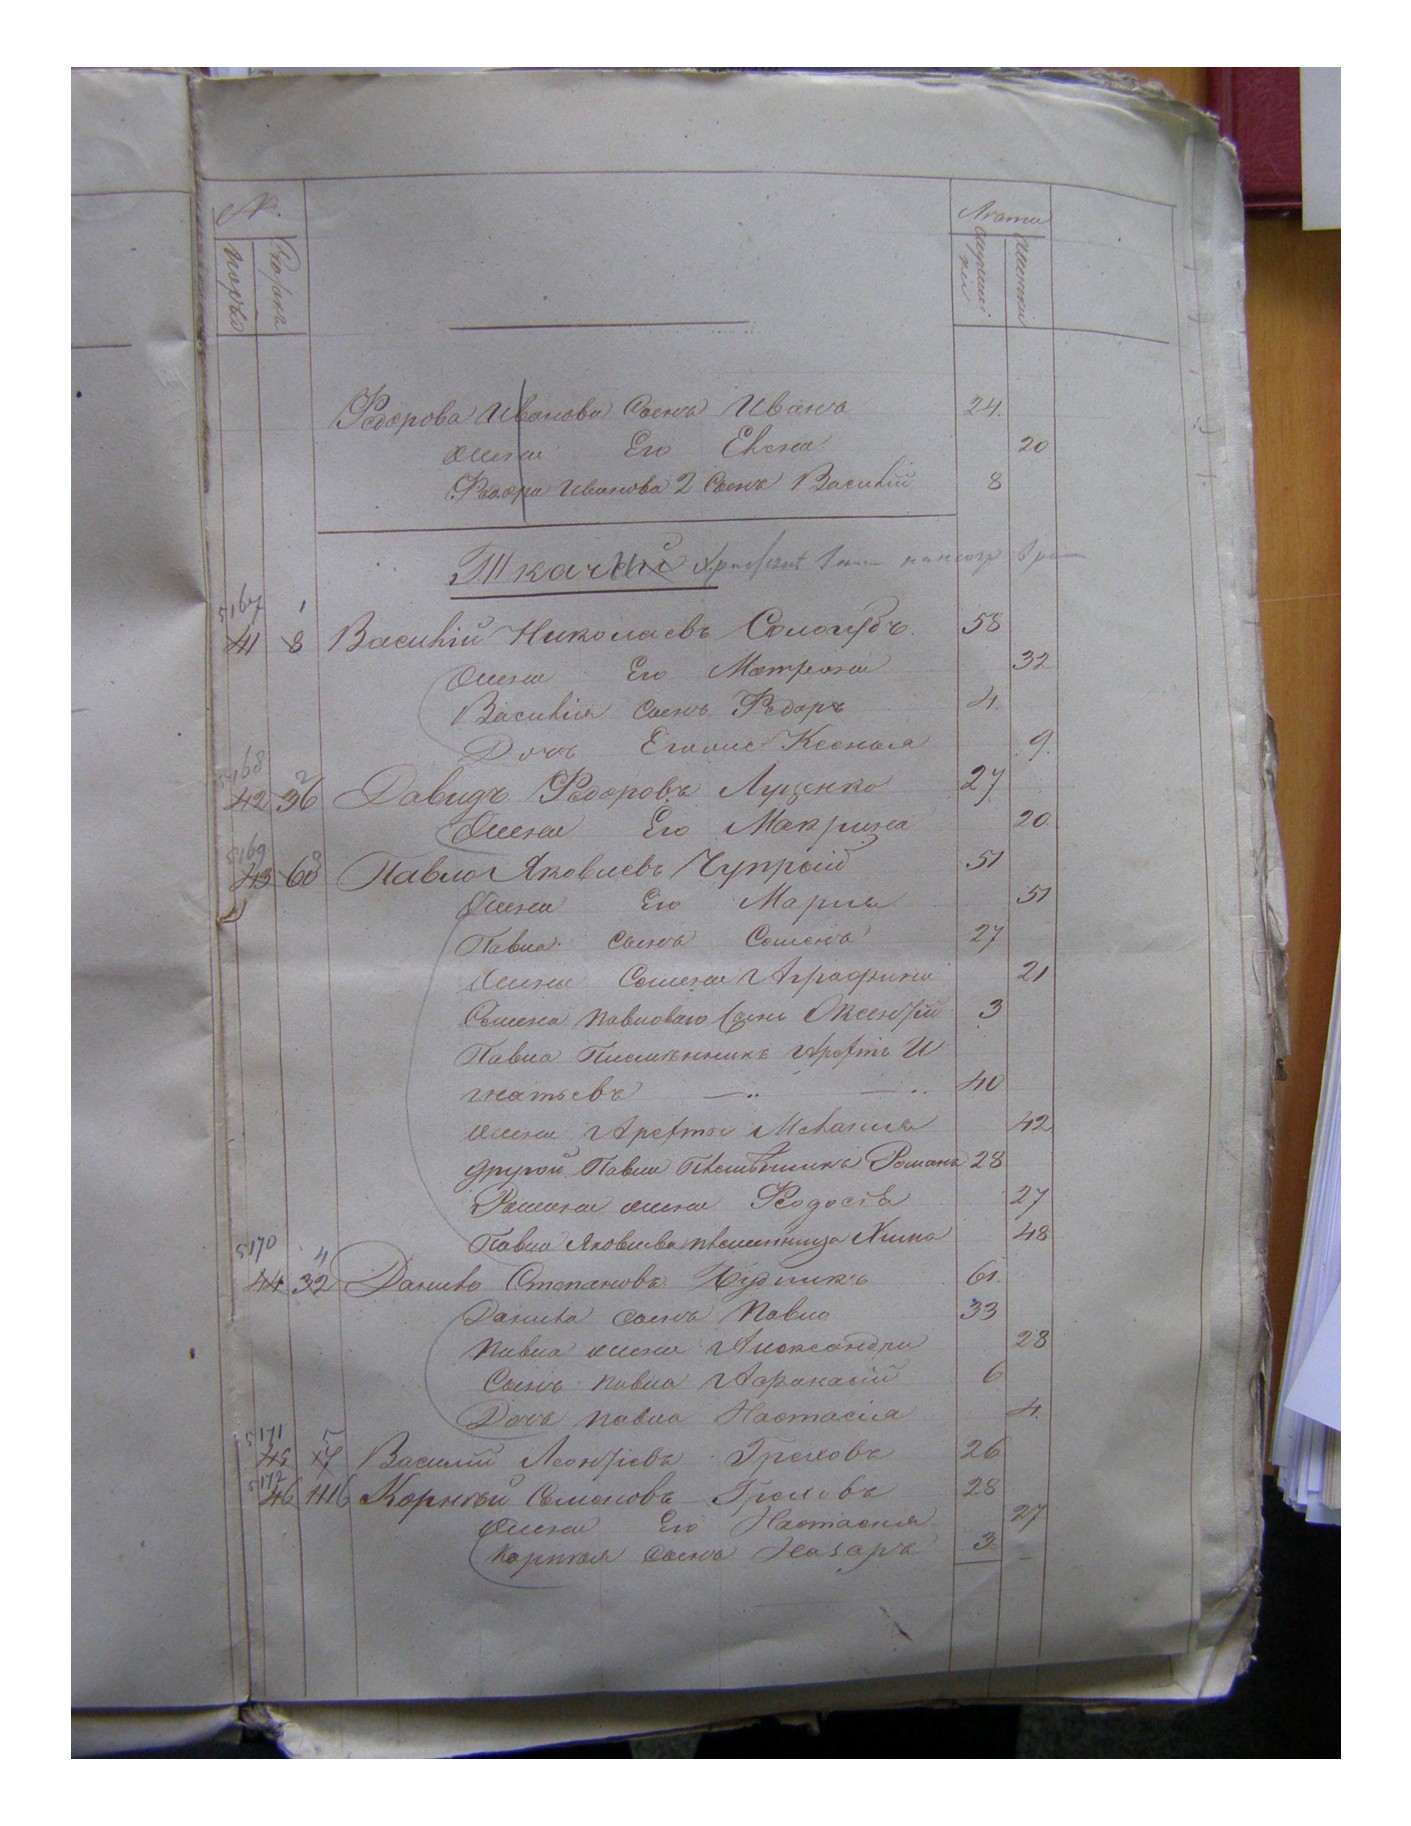 №.
Лѣта
Федорова Иванова Сынъ Иванъ 24.
Жена Его Елена 20
Федора Иванова 2 Сынъ Василій 8
Ткачи
5167 1
41 8 Василій Николаевъ Сологубъ. 58
Жена Его Матрона 32
Василія Сынъ Федоръ 4.
Дочь Ксенія 9.
5168 2
42 36 Давидъ Федоровъ Луценко 27
Жена Его Макрина 20
5169 3
43 60 Павло Яковлевъ Чупрый 51
Жена Его Марія 51
Павла Сынъ Семенъ 27
Жена Семена Аграфина 21
Семена Павлового Сынъ 3
Павла Племѣнникъ Арефтъ И
гнатьевъ 40
жена Арефты Меланія 42
другой Павла Племѣнникъ Романъ 28
Романа жена Федосія 27
Павла Яковлева племенница Хима 48
5170 4
44 32 Данило Степановъ Будникъ 61.
Данила сынъ Павло 33
Павла жена Александра 28
Сынъ Павла Афанасій 6
Дочь Павла Настасія 4.
5171 5
45 Василій Леонтіевъ Греховъ 26
5172
46 Корнѣй Семеновъ Греховъ 28
Жена Его Настасия 27
Корнѣя Сынъ Назаръ 3